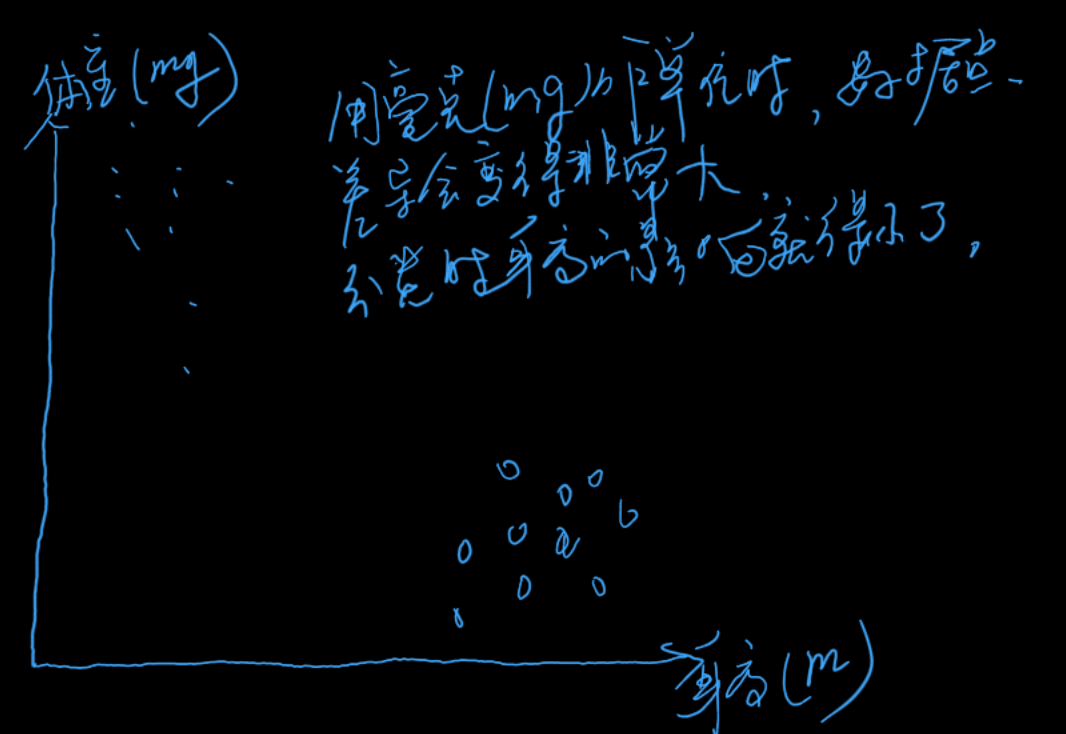 体重(mg)
用毫克(mg)为单位时,数据点
差异会变得非常大,
分类时耳高的影响就很小了,
耳高(m)